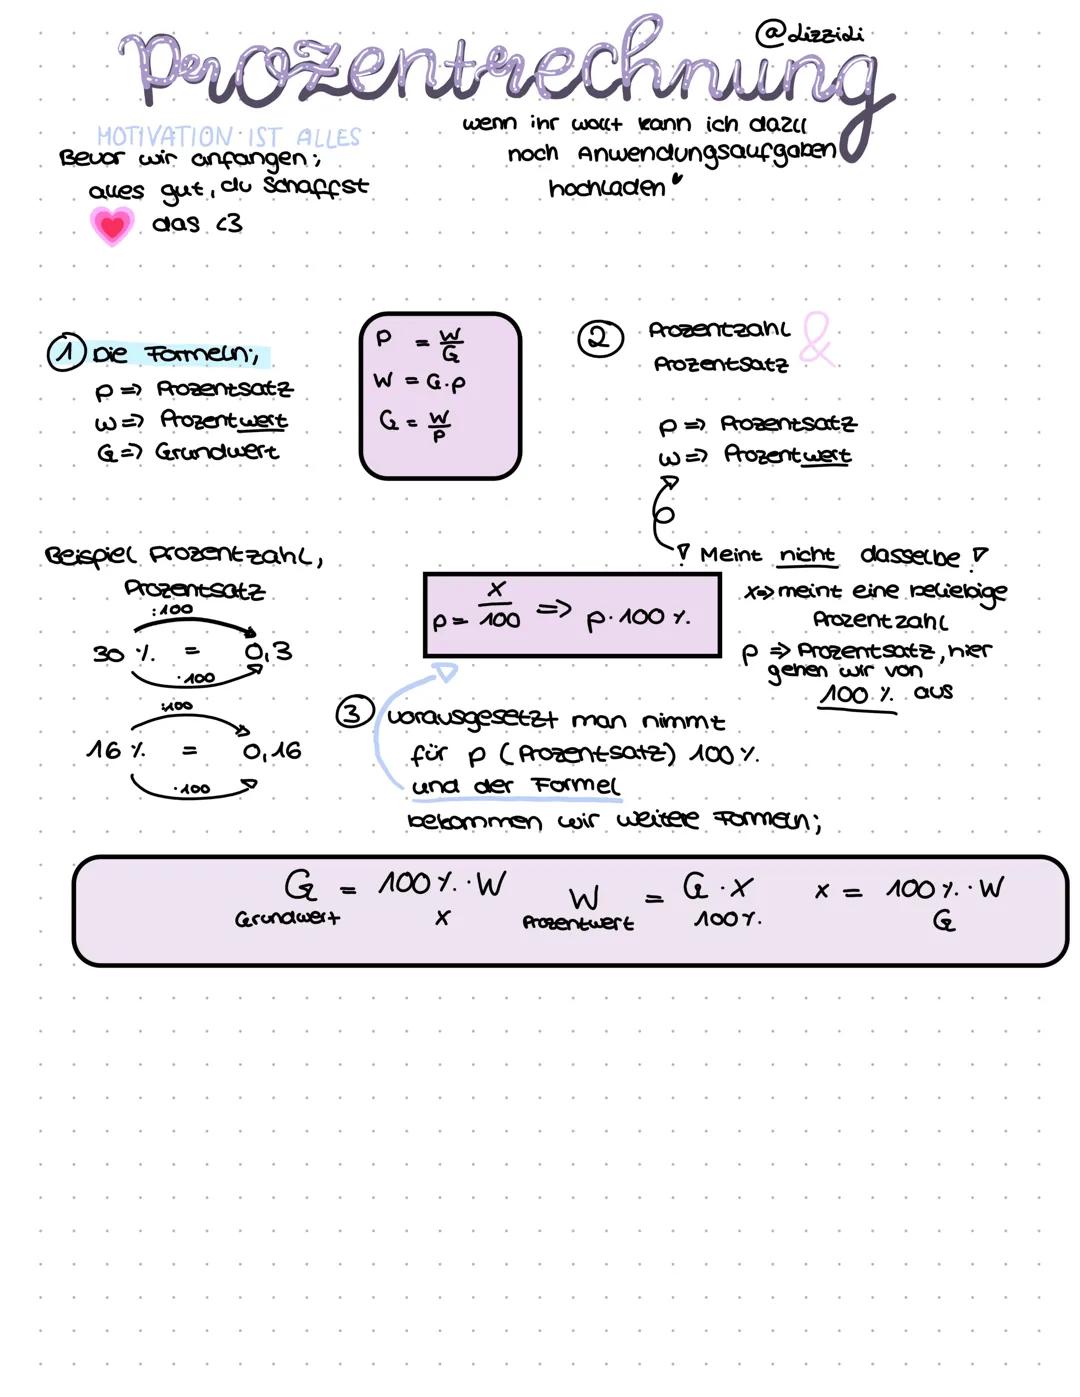 @Lizzidi
Prozentrechnung
MOTIVATION IST ALLES
Bevor wir anfangen;
alles gut, du schaffst
das <3
wenn ihr wollt kann ich dazu
noch Anwendungsaufgaben
hochladen
1 Die Formeln;
p => Prozentsatz
w => Prozentwert
G => Grundwert
P = W/G
W = G·p
G = W/P
2 Prozentzahl &
Prozentsatz
p => Prozentsatz
w => Prozentwert
! Meint nicht dasselbe !
x => meint eine beliebige
Prozentzahl
p => Prozentsatz, hier
gehen wir von
100 % aus
Beispiel Prozentzahl,
Prozentsatz
:100
30 % = 0,3
·100
:100
16 % = 0,16
·100
p = x/100 => p·100 %.
3 vorausgesetzt man nimmt
für p (Prozentsatz) 100 %.
und der Formel
bekommen wir weitere Formeln;
G = 100 %·W W = G·X x = 100 %·W
Grundwert X Prozentwert 100 %. G